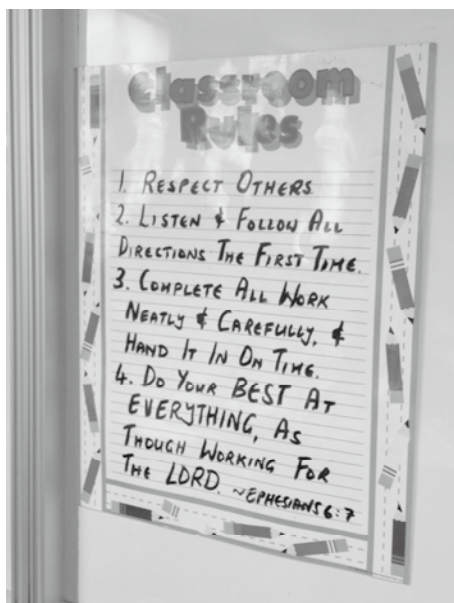 Classroom
Rules
1. RESPECT OTHERS
2. LISTEN & FOLLOW ALL
DIRECTIONS THE FIRST TIME.
3. COMPLETE ALL WORK
NEATLY & CAREFULLY, &
HAND IT IN ON TIME.
4. DO YOUR BEST AT
EVERYTHING, AS
THOUGH WORKING FOR
THE LORD. ~EPHESIANS 6:7